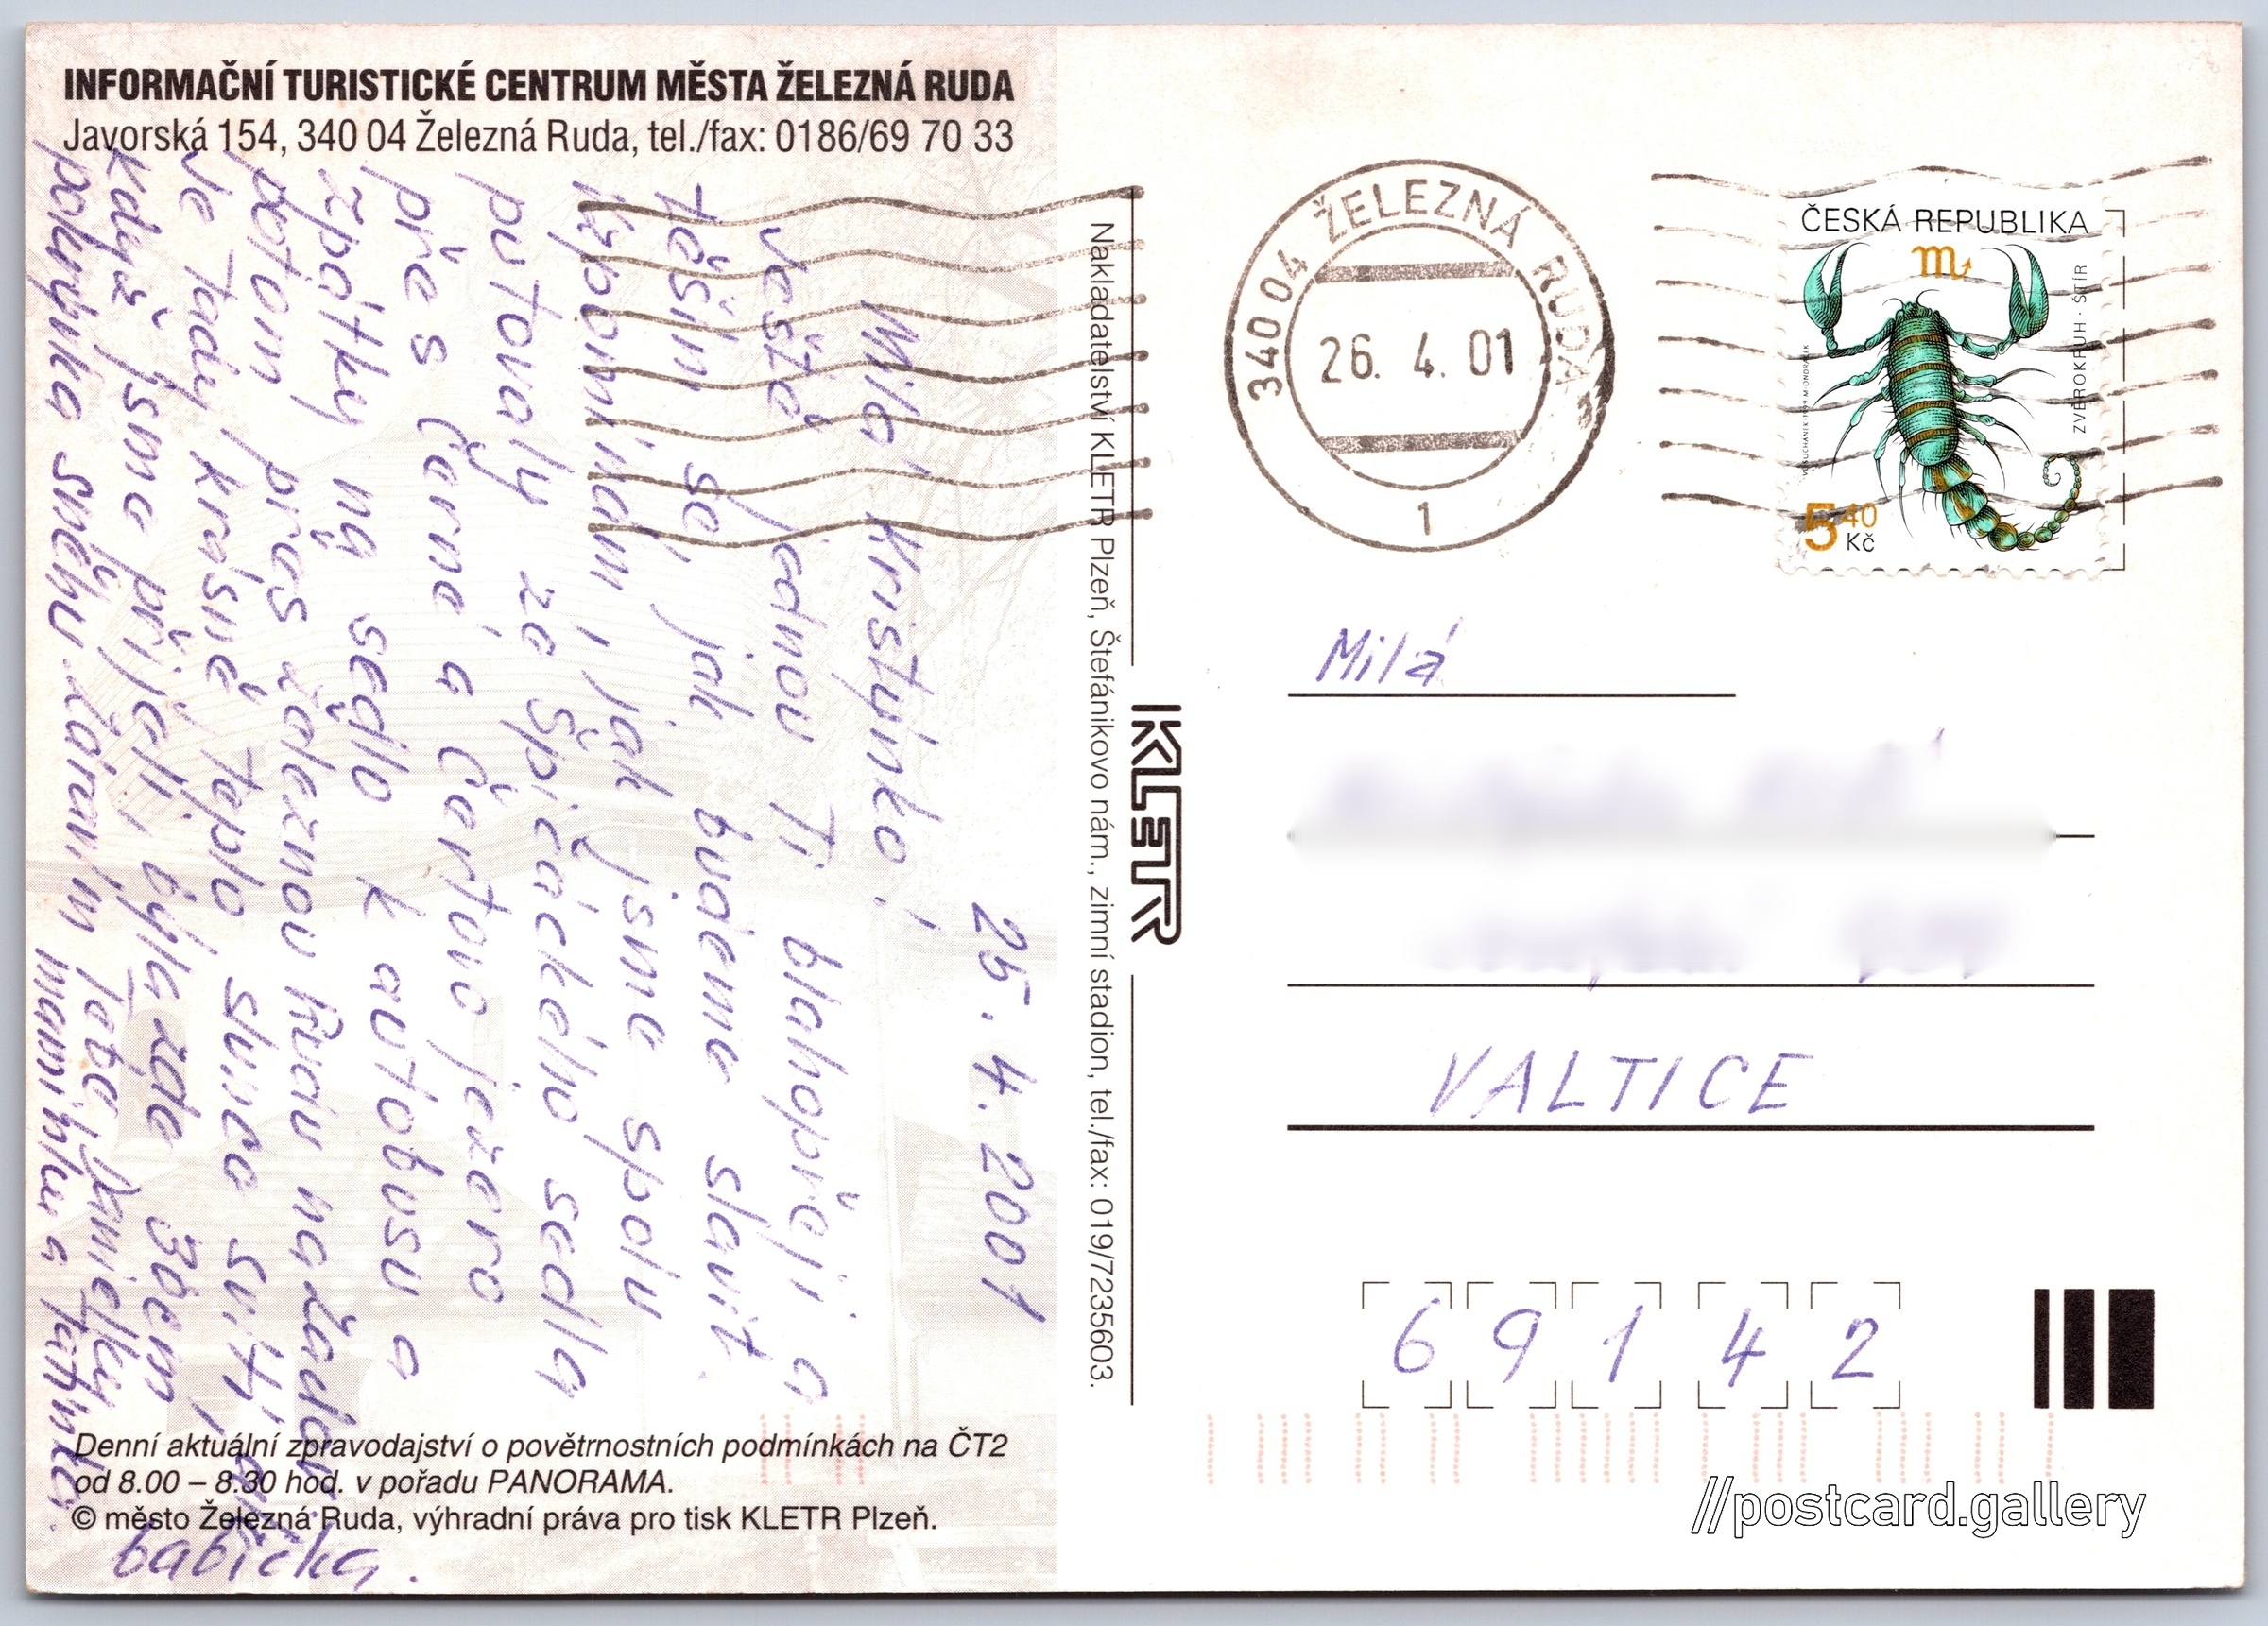 INFORMAČNÍ TURISTICKÉ CENTRUM MĚSTA ŽELEZNÁ RUDA
Javorská 154, 340 04 Železná Ruda, tel./fax: 0186/69 70 33
25. 4. 2001
Milá Kristýnko!
Ještě jednou Ti blahopřeji a
těším se, jak budeme slavit.
Vzpomínám, jak jsme spolu
putovaly ze Špičáckého sedla
přes Černé a Čertovo jezero
zpátky na sedlo k autobusu a
potom přes Železnou Rudu na
Je tady krásně, teplo slunce svítí,
když jsme přijeli, byla zde 30cm
pokrývka sněhu. Zdravím maminku a
babička.
Denní aktuální zpravodajství o povětrnostních podmínkách na ČT2
od 8.00 – 8.30 hod. v pořadu PANORAMA.
© město Železná Ruda, výhradní práva pro tisk KLETR Plzeň.
Nakladatelství KLETR Plzeň, Štefánikovo nám., zimní stadion, tel./fax: 019/7235603.
KLETR
340 04 ŽELEZNÁ RUDA
26. 4. 01
1
ČESKÁ REPUBLIKA
ZVĚROKRUH · ŠTÍR
5 40
Kč
Milá
VALTICE
6 9 1 4 2
//postcard.gallery